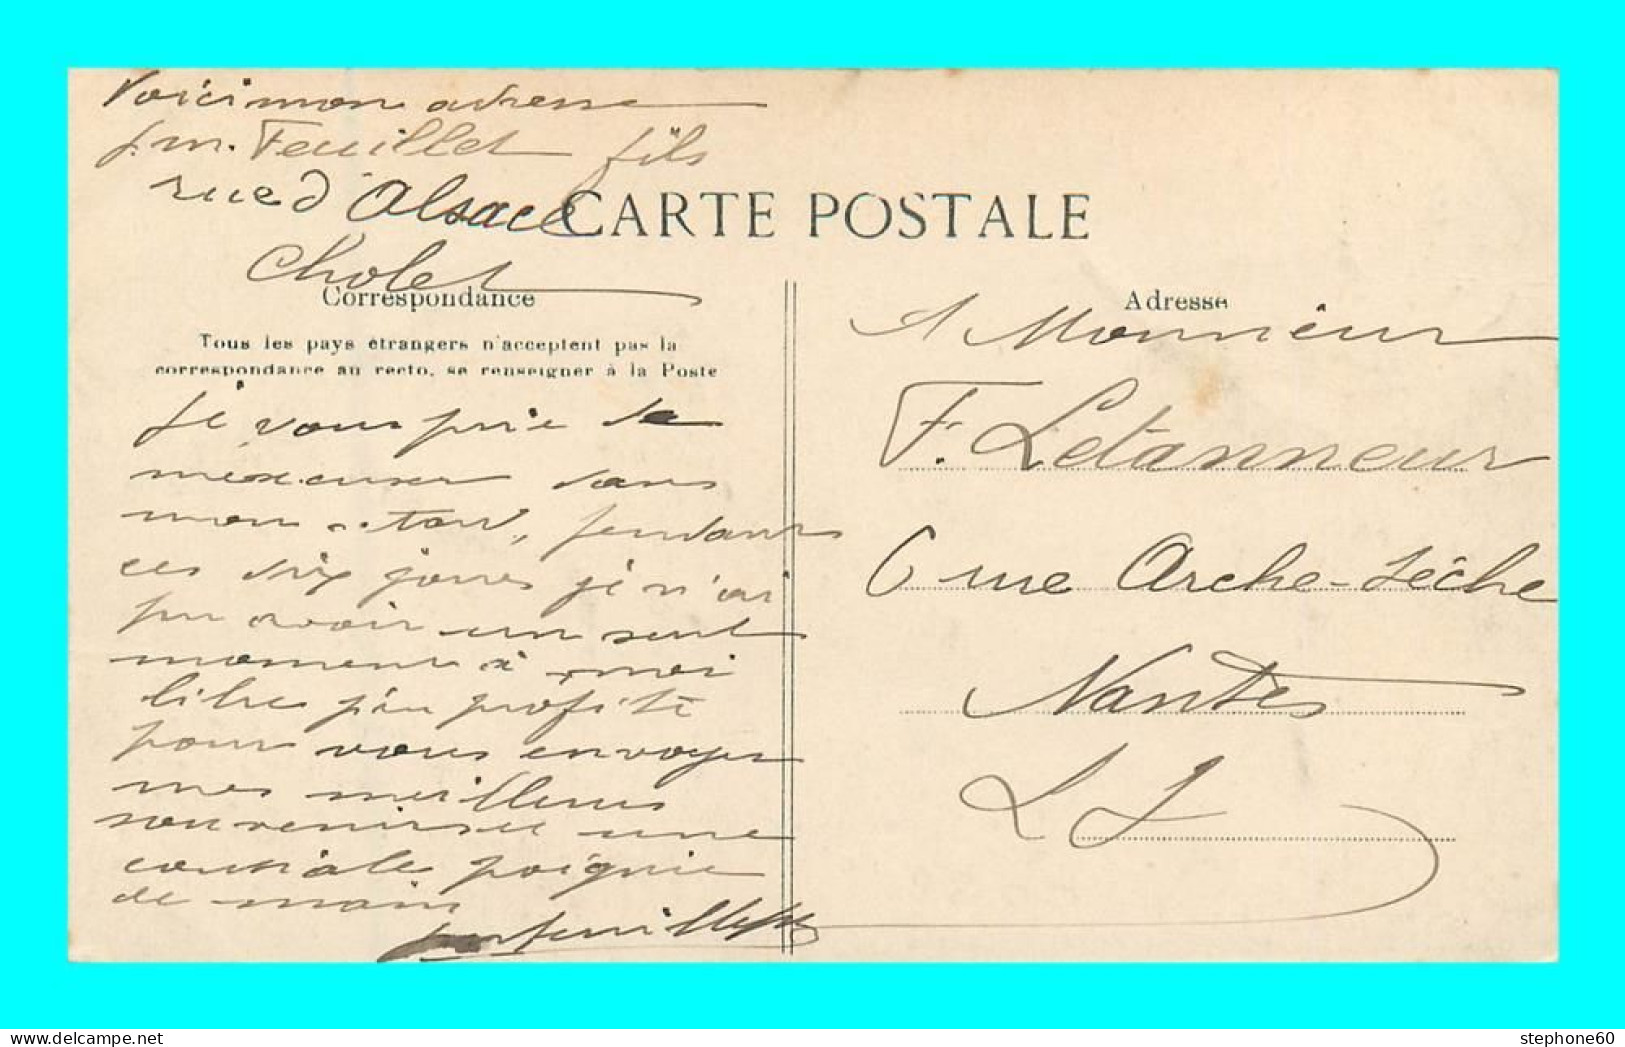 Voici mon adresse
J. m. Feuillet fils
rue d'Alsace
Cholet
CARTE POSTALE
Correspondance
Tous les pays étrangers n'acceptent pas la
correspondance au recto, se renseigner à la Poste
Je vous prie de
m'excuser dans
mon retard, pendant
ces dix jours je n'ai
pu avoir un seul
moment à moi
libre j'en profite
pour vous envoyer
mes meilleurs
souvenirs et une
cordiale poignée
de main
Feuillet fils
Adresse
A Monsieur
F. Letanneur
6 rue Arche-Sèche
Nantes
L I
stephone60